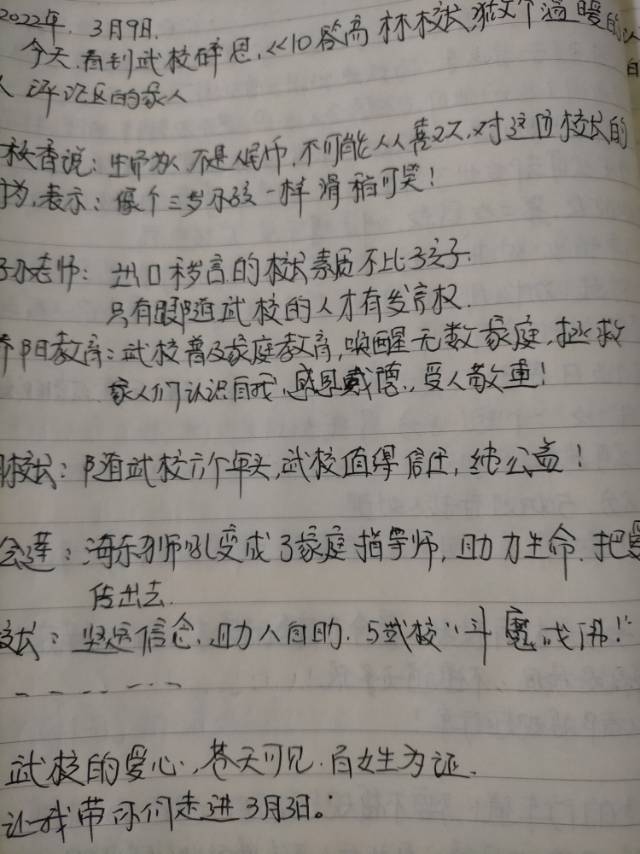 2022年. 3月9日.
今天看到武校碎思,《10答高林校长,做个温暖的
评论区的家人
秋香说:生而为人 不是人民币,不可能人人喜欢,对这位校长的
表示:像个三岁小孩一样滑稽可笑!
老师: 出口秽言的校长素质不比孩子.
只有跟随武校的人才有发言权.
阳教育:武校普及家庭教育,唤醒无数家庭,拯救
家人们认识自我,感恩戴德,受人敬重!
校长:随武校六个年头,武校值得信任,纯公益!
会莲:海东狮吼变成了家庭指导师,助力生命.把爱
传出去.
校长:坚定信念,助人自助.与武校"斗魔成佛!"
武校的爱心,苍天可见.百姓为证.
让我带你们走进3月3日。